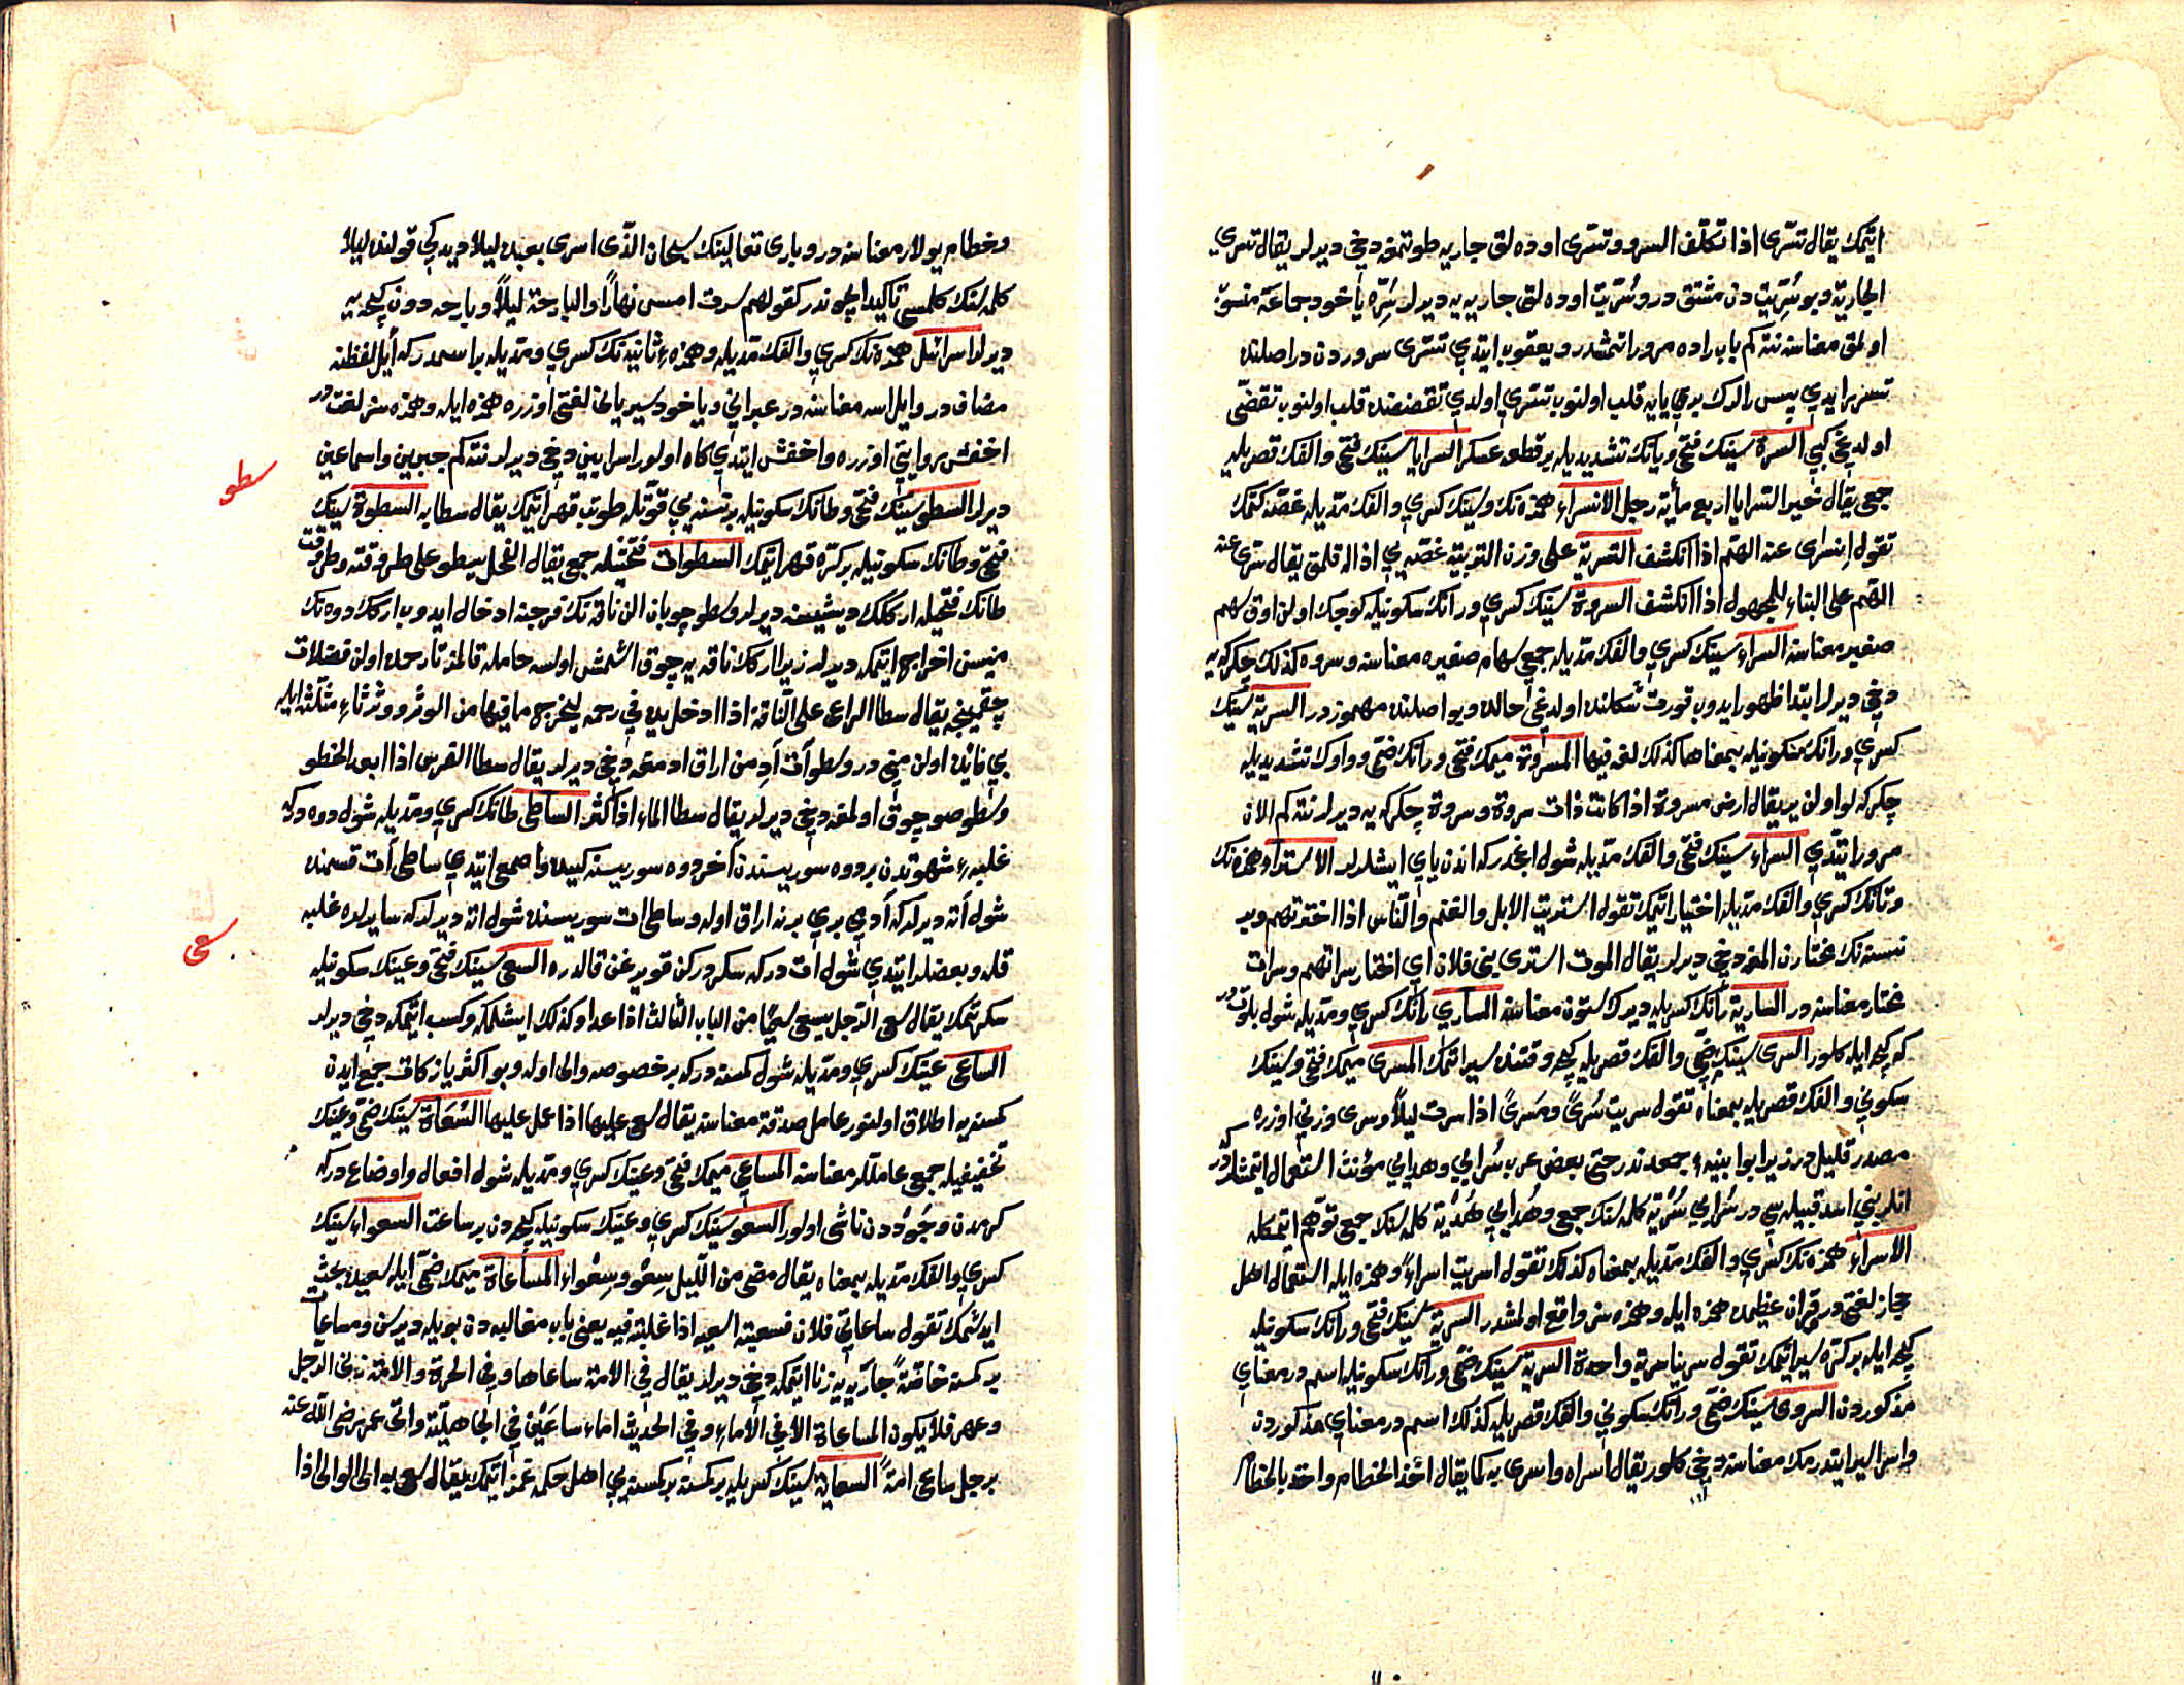 اتمك يقال تسرى اذا تكلف السرو وتسرى اوده لق جاريه طوتمغه دخي ديرلر يقال تسرى
الجارية وبو سريت دن مشتق در وسريت اوده لق جاريه يه ديرلر سره ياخود جماعة منسوبه
اولمق معناسنه نته كم باب راده مرور اتمشدر ويعقوب ايتدي تسرى سروردن در اصلنده
تسرر ايدي پس رالرك بري يايه قلب اولنوب تسرى اولدي تقضضنده قلب اولنوب تقضى
اولدغي كبي السرية سينك فتحي ويانك تشديديله بر قطعه عسكر السرايا سينك فتحي والفك قصريله
جمعي يقال خير السرايا اربع مأية رجل الانسراء همزه نك وسينك كسري والفك مديله غصه كتمك
تقول انسرى عنه الهم اذا انكشف التسرية على وزن التربية غصه يي ازاله قلمق يقال سرى عنه
الهم على البناء للمجهول اذا انكشف السروة سينك كسري ورانك سكونيله كوچك اولن اوق سهم
صغير معناسنه السراء سينك كسري والفك مديله جمعي سهام صغيره معناسنه وسروه كذلك چكركه يه
دخي ديرلر ابتدا ظهور ايدوب قورت شكلنده اولدغي حالده وبو اصلنده مهموزدر السرية سينك
كسري ورانك سكونيله بمعناها كذلك لغة فيها المسروة ميمك فتحي ورانك ضمي وواوك تشديديله
چكركه لو اولن ير يقال ارض مسروة اذا كانت ذات سروة وسروة چكركه يه ديرلر نته كم الان
مرور ايتدي السراء سينك فتحي والفك مديله شول اغجدركه اندن ياي ايشلرلر الاستراء همزه نك
وتانك كسري والفك مديله اختيار اتمك تقول استريت الابل والغنم والناس اذا اخترتهم وبر
نسنه نك مختارن المغه دخي ديرلر يقال الموت استرى بني فلان اي اختار سراتهم وسرات
مختار معناسنه در السارية رانك كسريله ديرك ستون معناسنه الساري رانك كسري ومديله شول بلوتدر
كه كيجه ايله كلور السرى سينك ضمي والفك قصريله كيجه وقتنده سير اتمك المسرى ميمك فتحي وسينك
سكوني والفك قصريله بمعناه تقول سريت سرىً ومسرىً اذا سرت ليلاً وسرى وزني اوزره
مصدر قليل در زيرا بو ابنيه جمعدندر حتى بعض عرب سرايي وهدايي مؤنث استعمال ايتمشلردر
انلر بني اسد قبيله سي در سرايي سرية كلمه سنك جمعي وهدايي هدية كلمه سنك جمعي توهم اتمكله
الاسراء همزه نك كسري والفك مديله بمعناه كذلك تقول اسريت اسراءً وهمزه ايله استعمال اهل
حجاز لغتي در قران عظيمده همزه ايله وهمزه سز واقع اولمشدر السرية سينك فتحي ورانك سكونيله
كيجه ايله بر كره سير اتمك تقول سرينا سرية واحدة السرية سينك ضمي ورانك سكونيله اسم در معناي
مذكوردن السروى سينك ضمي ورانك سكوني والفك قصريله كذلك اسم در معناي مذكوردن
واسرا لير ايتدرمك معناسنه دخي كلور يقال اسراه واسرى به كما يقال اخذ الخطام واخذ بالخطام
وخطام يولار معناسنه در وباري تعالينك سبحان الذى اسرى بعبده ليلا ديدكي قولنده ليلا
كلمه سنك كلمسي تاكيد ايچوندر كقولهم سرت امس نهاراً والبارحة ليلاً وبارحه دون كيجه يه
ديرلر اسرائيل همزه نك كسري والفك مديله وهمزه ء ثانيه نك كسري ومديله بر اسمدر كه ايل لفظنه
مضاف در وايل الله معناسنه در عبراني ويا خود سرياني لغتي اوزره همزه ايله وهمزه سز لغت در
اخفش روايتي اوزره واخفش ايتدي كاه اولور اسرايين دخي ديرلر نته كم جبرين واسماعين
ديرلر السطو سينك فتحي وطانك سكونيله بر نسنه يي قوتله طوتب قهر اتمك يقال سطا به السطوة سينك
فتحي وطانك سكونيله بر كره قهر اتمك السطوات فتحتيله جمعي يقال الفحل يسطو على طروقته وطروقت
طانك فتحيله اركك ديشيسنه ديرلر وسطو چوبان الن ناقه نك فرجنه ادخال ايدوب اركك دوه نك
منيسن اخراج ايتمكه ديرلر زيرا اركك ناقه يه چوق اشمش اولسه حامله قالمز تا رحمده اولن فضلات
چقمينجه يقال سطا الراعى على الناقة اذا ادخل يده في رحمها ليخرج ما فيها من الوثر ووثر ثاء مثلثه ايله
بي فائده اولن مني در وسطو آت آدمن اراق اتمغه دخي ديرلر يقال سطا الفرس اذا ابعد الخطو
وسطو صو چوق اولمغه دخي ديرلر يقال سطا الماء اذا كثر الساطى طانك كسري ومديله شول دوه دركه
غلبه ء شهوتدن بر دوه سوريسندن آخر دوه سوريسنه كيده واصمعي ايتدي ساطى آت قسمنده
شول آته ديرلركه آديمي بري برندن اراق اوله وساطى ات سوريسنده شول اته ديرلركه سايرلره غلبه
قله وبعضلر ايتدي شول ات دركه سكردركن قويرغن قالدره السعى سينك فتحي وعينك سكونيله
سكرتمك يقال سعى الرجل يسعى سعيًا من الباب الثالث اذا عدا وكذلك ايشلمكه وكسب ايتمكه دخي ديرلر
الساعى عينك كسري ومديله شول كمسنه دركه بر خصوصه والى اوله وبو اكثر يا زكات جمع ايدن
كمسنه يه اطلاق اولنور عامل صدقة معناسنه يقال سعى عليها اذا عمل عليها السعاة سينك ضمي وعينك
تخفيفيله جمعي عاملر معناسنه المساعي ميمك فتحي وعينك كسري ومديله شول افعال واوضاع دركه
كرمدن وجوددن ناشى اولور السعو سينك كسري وعينك سكونيله كيجه دن بر ساعت السعواء سينك
كسري والفك مديله بمعناه يقال مضى من الليل سعو وسعواء المساعاة ميمك ضمي ايله سعيده بحث
ايدشمك تقول ساعاني فلان فسعيته اسعيه اذا غلبته فيه يعنى باب مغالبه دن بويله ديرسن ومساعات
بر كمسنه خاصةً جاريه يه زنا ايتمكه دخي ديرلر يقال في الامة ساعاها وفي الحرة والامة زنى الرجل
وعهر فلا يكون المساعاة الا في الاماء وفي الحديث اماء ساعين في الجاهلية واتى عمر رضى الله عنه
برجل ساعى امةً السعاية سينك كسريله بر كمسنه بر كمسنه يي اهل حكمه غمز ايتمك يقال سعى به الى الوالى اذا
سطو
سعى